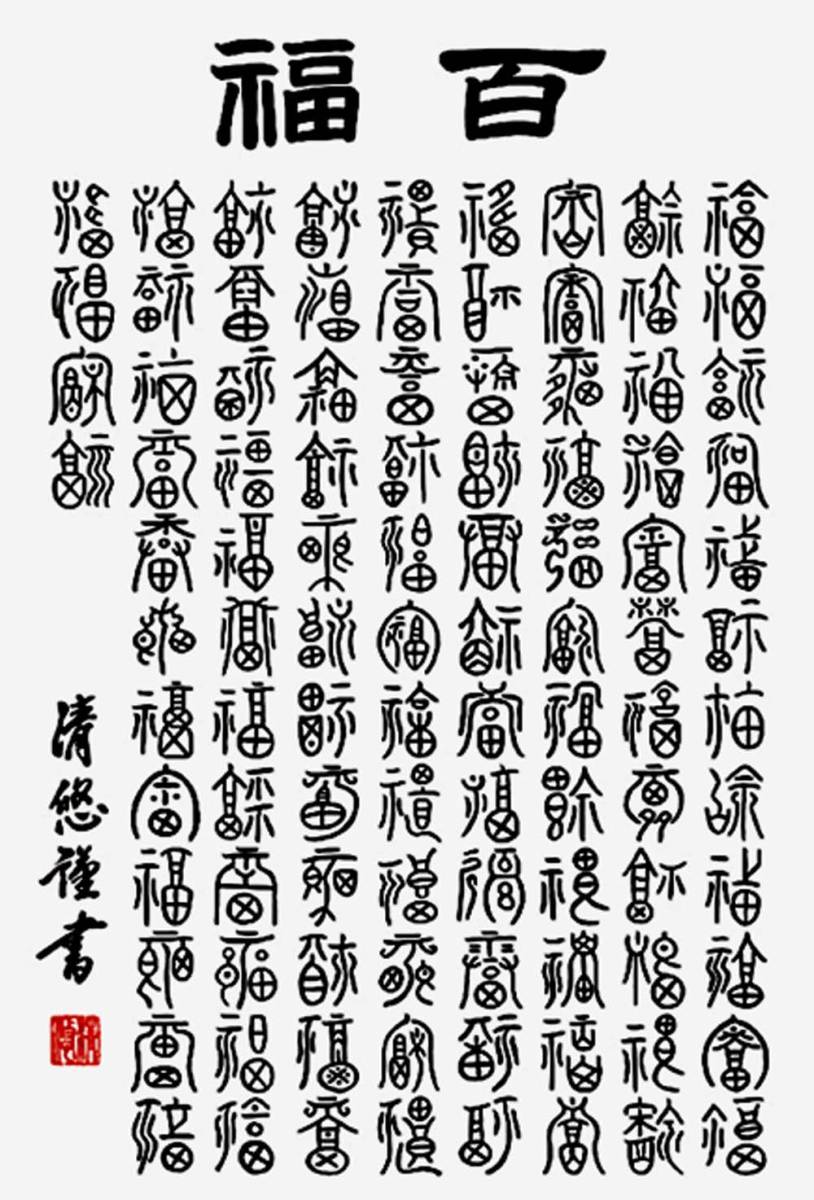 百福
福福福福福福福福福福福福
福福福福福福福福福福福福
福福福福福福福福福福福福
福福福福福福福福福福福福
福福福福福福福福福福福福
福福福福福福福福福福福福
福福福福福福福福福福福福
福福福福福福福福福福福福
福福福福
清悠謹書